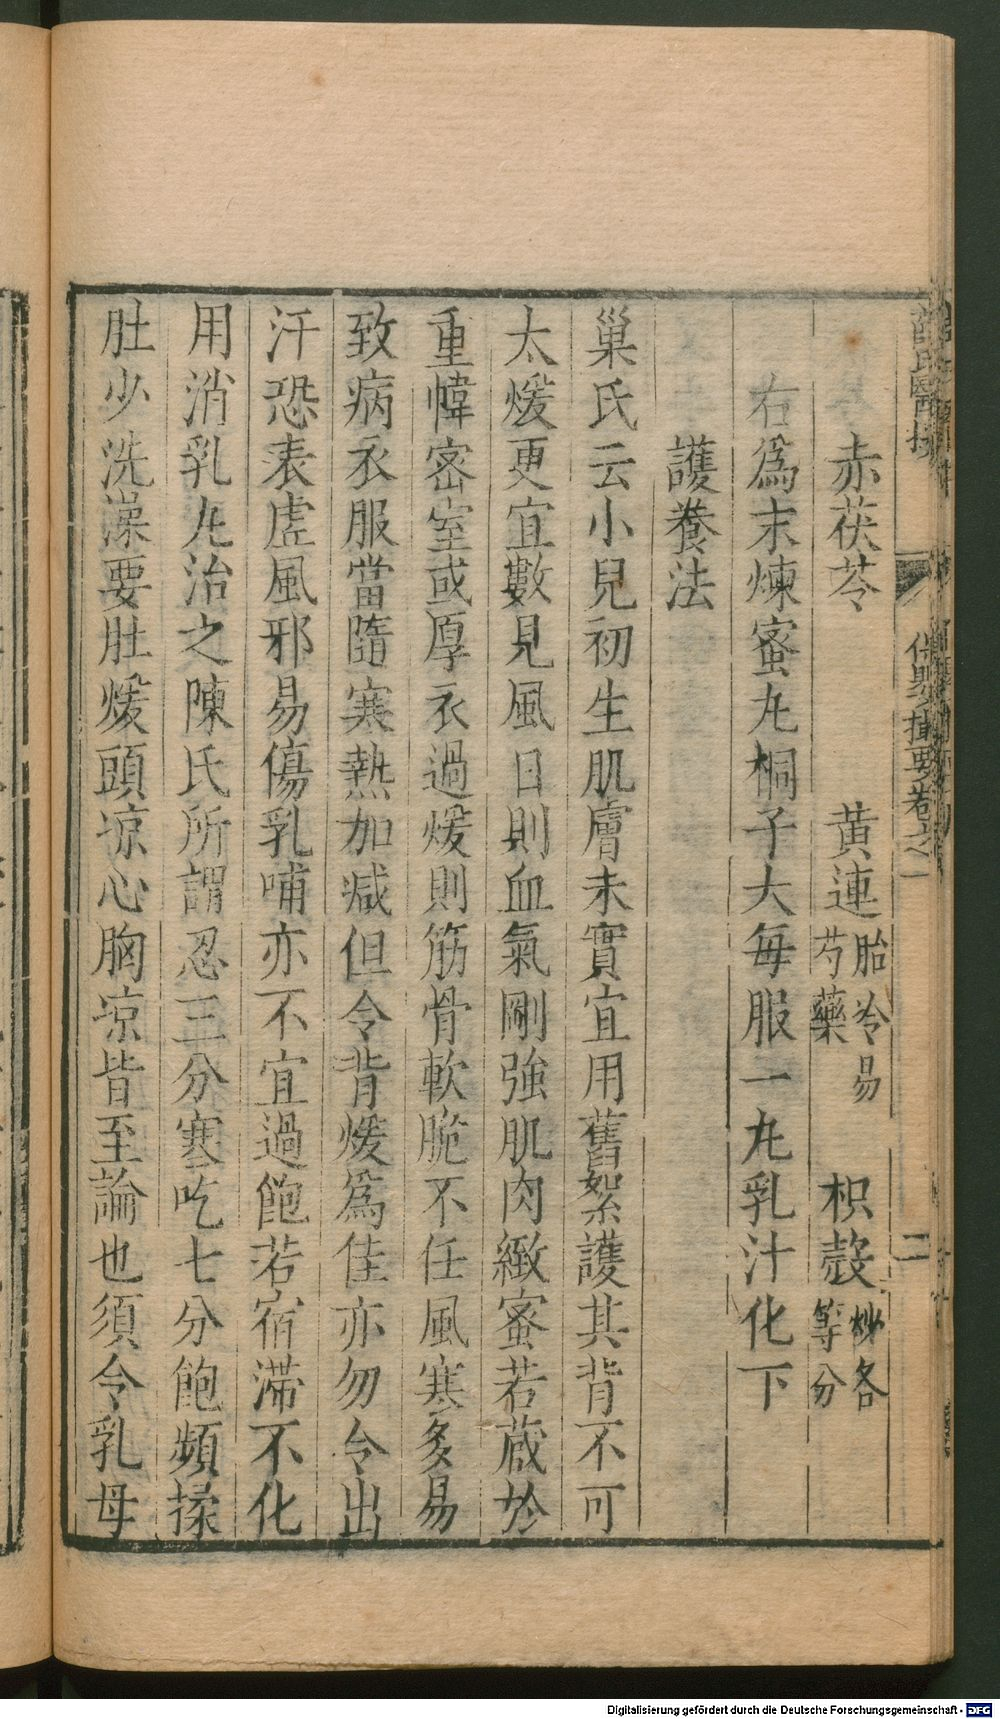 赤茯苓　黃連胎冷易芍藥　枳殼炒各等分
右爲末煉蜜丸桐子大每服一丸乳汁化下
護養法
巢氏云小兒初生肌膚未實宜用舊絮護其背不可
太煖更宜數見風日則血氣剛強肌肉緻蜜若藏於
重幃密室或厚衣過煖則筋骨軟脆不任風寒多易
致病衣服當隨寒熱加减但令背煖爲佳亦勿令出
汗恐表虛風邪易傷乳哺亦不宜過飽若宿滯不化
用消乳丸治之陳氏所謂忍三分寒吃七分飽頻揉
肚少洗澡要肚煖頭凉心胸凉皆至論也須令乳母
保嬰撮要卷之一
二
Digitalisierung gefördert durch die Deutsche Forschungsgemeinschaft - DFG